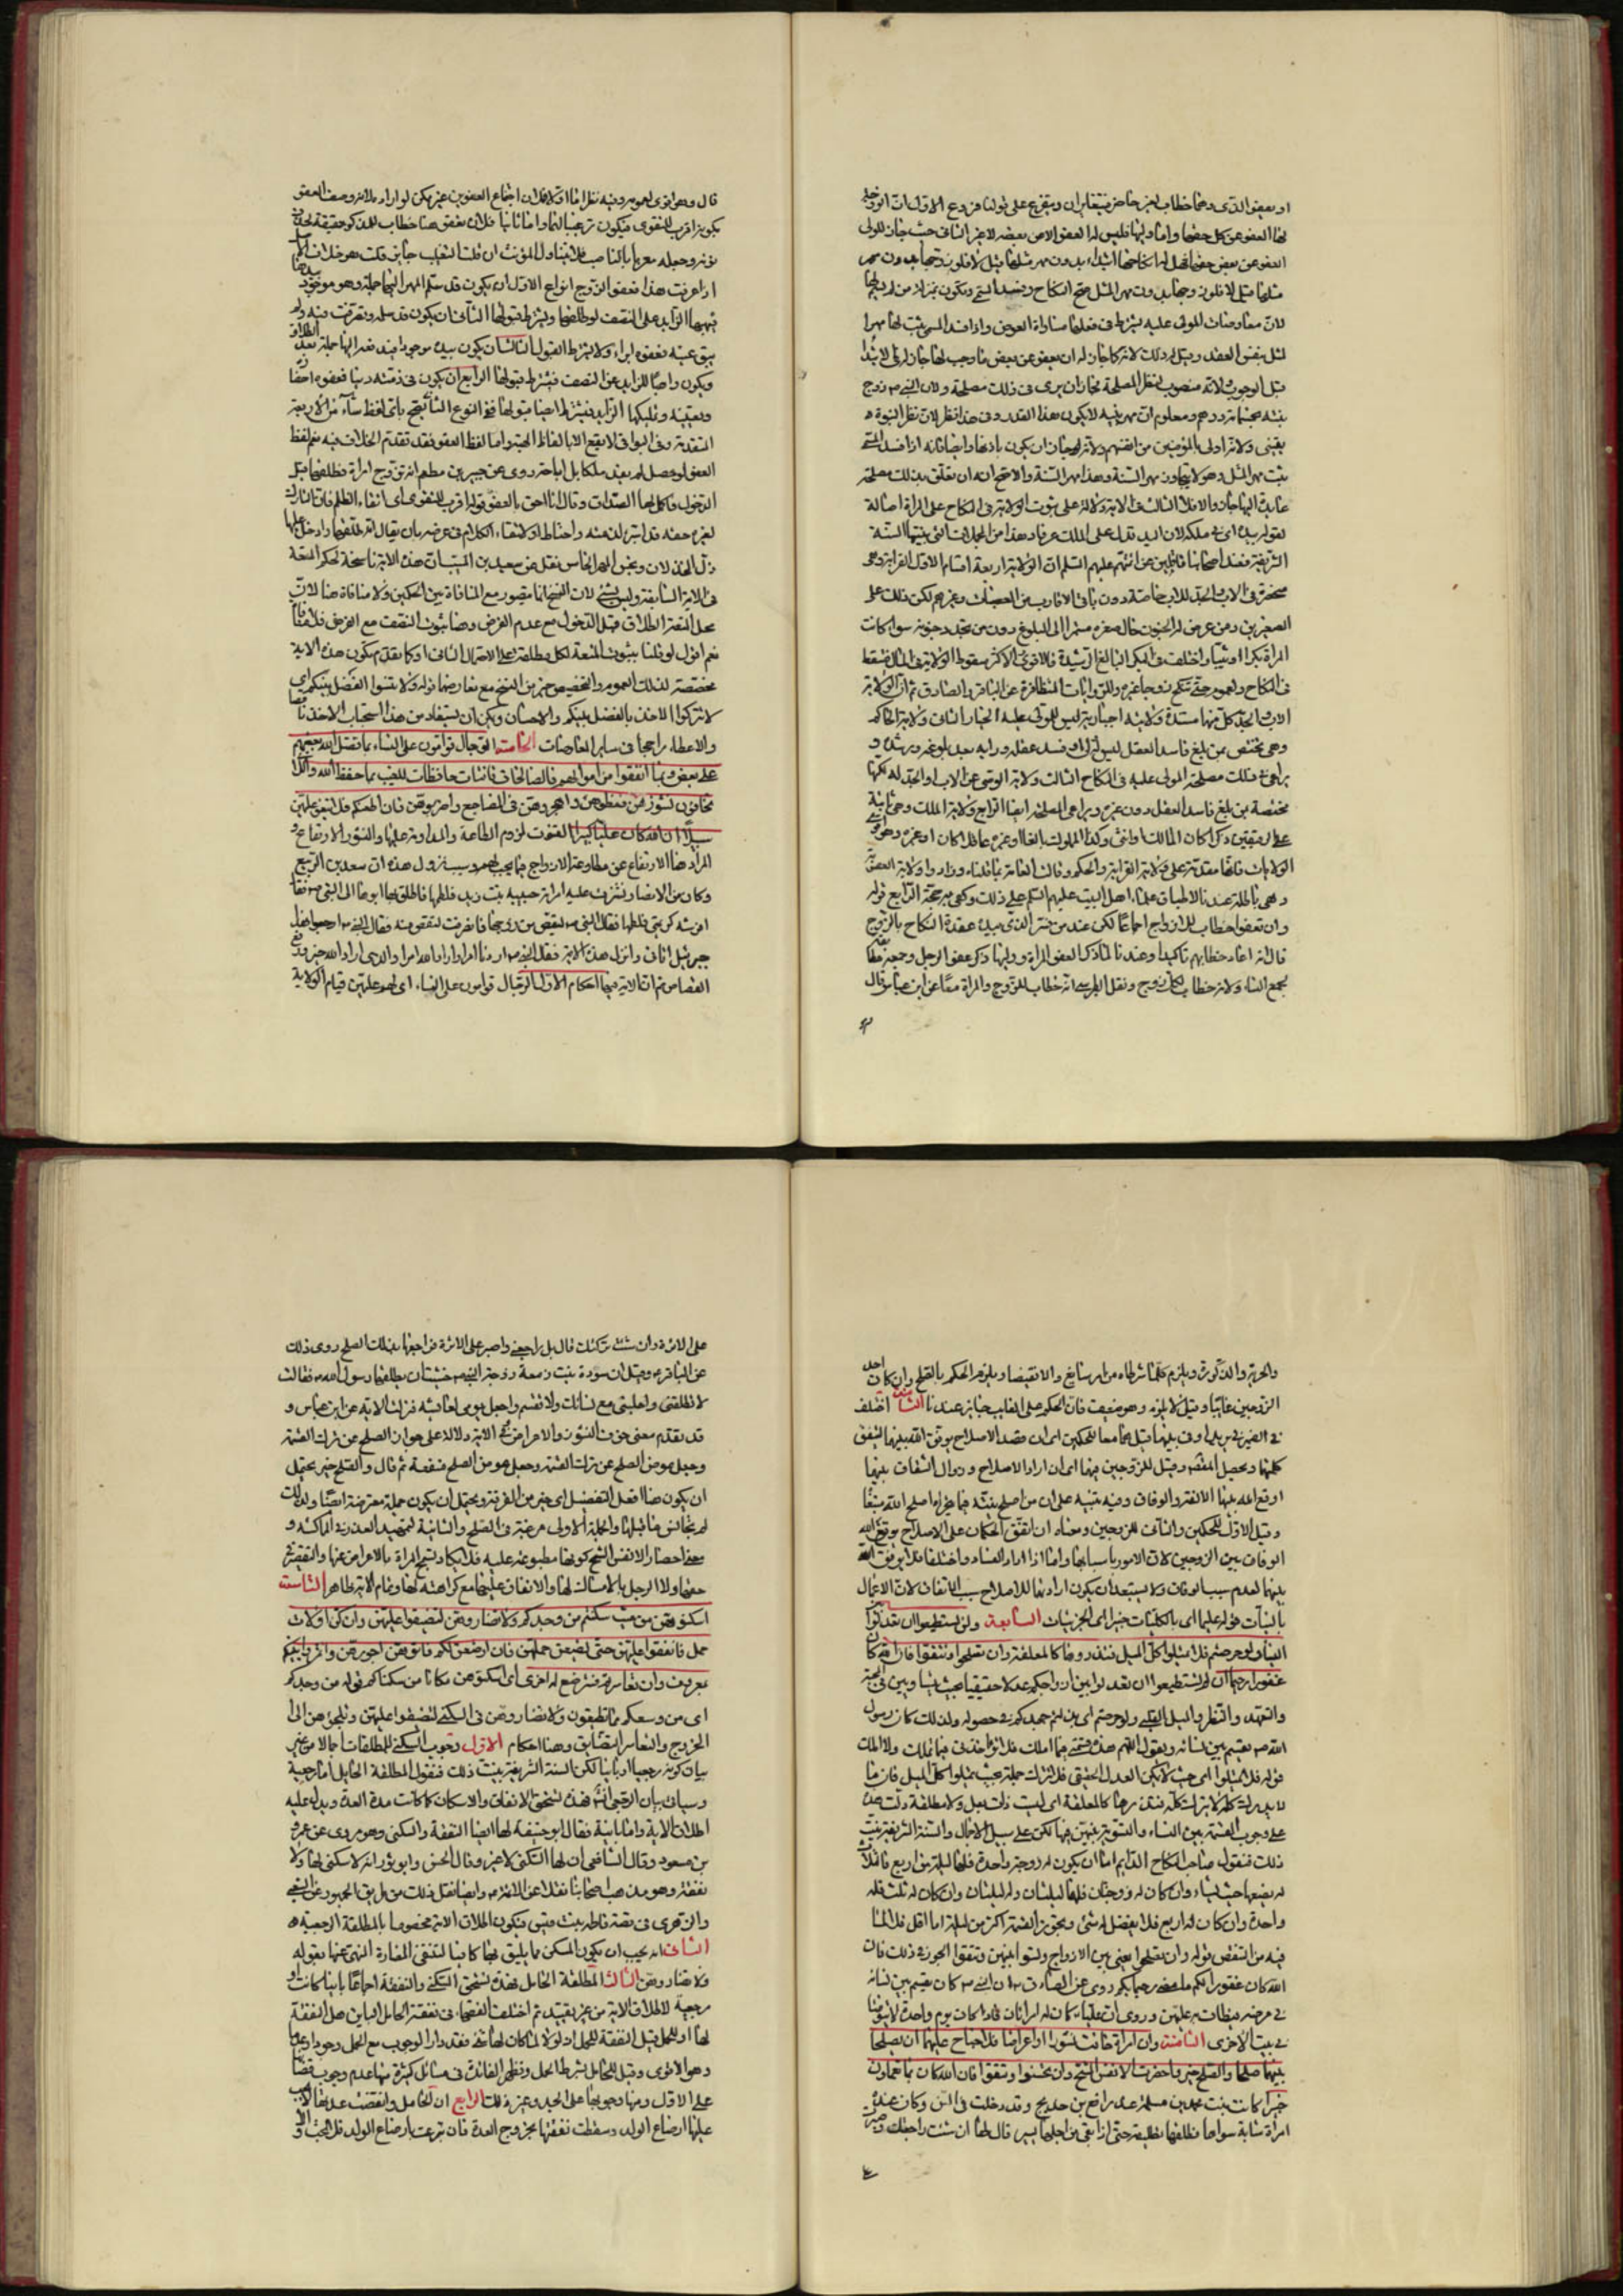 او يعفو الذى وهما خطاب لغير حاضر فيتغايران ويتفرع على قولنا فروع الاول ان الزوجة
لها العفو عن كل حقها واما وليها فليس له العفو الا عن بعضه لا غير الثانى حيث جاز للولى
العفو عن بعض حقها فهل له انكاحها ابتداء بدون مهر مثلها قيل لا فلو زوجها بدون مهر
مثلها قيل لا فلو زوجها بدون مهر المثل صح النكاح وفسد المسمى وتكون بمنزلة من لم يسم لها
لان معاوضات المولى عليه يشترط فى فعلها مساواة العوض واذا فسد المسمى يثبت لها مهر
المثل بنفس العقد وقيل له ذلك لانه كما جاز له ان يعفو عن بعض ما وجب لها جاز له فى الابتداء
قبل الوجوب لانه منصوب لنظر المصلحة فجاز ان يرى فى ذلك مصلحة ولان النبى ص زوج
بنته بخمسمائة درهم ومعلوم ان مهر بنته لا يكون هذا القدر وفى هذا نظر لان نظر النبوة
يقينى ولانه اولى بالمؤمنين من انفسهم ولانه لجاز ان يكون باذنها وايضا فانه اذا فسد المسمى
يثبت مهر المثل وهو لا يتجاوز مهر السنة وهذا مهر السنة والاصح انه ان تعلق بذلك مصلحة
عايدة اليها جاز والا فلا الثالث فى الاية دلالة على ثبوت الولاية فى النكاح على المراة اصالة
لقوله بيده اى فى ملكه لان اليد تدل على الملك عرفا وهذا من المجملات التى بينتها السنة
الشريفة فعند اصحابنا ناقلين عن ائمتهم عليهم السلام ان الولاية اربعة اقسام الاول القرابة وهى
منحصرة فى الاب والجد للاب خاصة دون باقى الاقارب من العصبات وغيرهم لكن ذلك على
الصغيرين ومن عرض له الجنون حال صغره مستمرا الى البلوغ دون من تجدد جنونه سوا كانت
المراة بكرا او ثيبا واختلف فى البكر البالغ الرشيدة فالاقوى الاكثر سقوط الولاية فى المال فتسقط
فى النكاح ولعموم حتى تنكح زوجا غيره وللروايات المتظافرة عن الباقر والصادق ثم ان الولاية
الاب والجد كل منهما مستبدة ولاية اجبارية ليس للمولى عليه الخيار الثانى ولاية الحاكم
وهى تختص بمن بلغ فاسد العقل ليس له اب او فسد عقله ورايه بعد بلوغه ورشده و
يراعى فى ذلك مصلحة المولى عليه فى النكاح الثالث ولاية الوصى عن الاب او الجد له لكنها
مختصة بمن بلغ فاسد العقل دون غيره ويراعى المصلحة ايضا الرابع ولاية الملك وهى ثابتة
على الرقيقين ذكرا كان المالك او انثى وكذا المملوك بالغا او غيره عاقلا كان او غيره وهو اقوى
الولايات فانها مقدمة على ولاية القرابة والحكم وقالت العامة بما قلناه وزادوا ولاية العصبة
وهى باطلة عندنا لاطباق علماء اهل البيت عليهم السلام على ذلك وكفى به حجة الرابع قوله
وان تعفوا خطاب للازواج اجماعا لكن عند من فسر الذى بيده عقدة النكاح بالزوج
قال انه اعاد خطابهم تاكيدا وعندنا لما ذكر العفو المراة ووليها ذكر عفو الرجل وجمعه مطابقة
لجمع النساء ولانه خطاب لكل زوج ونقل الطبرسى انه خطاب للزوج والمراة معا عن ابن عباس قال
قال وهو اقوى لعمومه وفيه نظر اما اولا فلان اجتماع العفوين غير ممكن لو اراد ملازمة صفة العفو
يكون اقرب للتقوى فيكون ترغيبا لهما واما ثانيا فلان تعفوا هنا خطاب للمذكر حقيقة لحذف
نونه وجعله معربا بالناصب فلا يتناول المؤنث ان قلت التغليب جايز قلت هو خلاف الاصل
اذا عرفت هذا فعفو الزوج انواع الاول ان يكون قد سلم المهر اليها جملة وهو موجود بيدها
فيهبها الزايد على النصف لو طلقها ويشترط قبولها الثانى ان يكون قد سلمه وتصرفت فيه ولم
يبق عينه فعفوه ابراء ولا يشترط القبول الثالث ان يكون بيده موجودا فيدفعه اليها جملة بعد الطلاق
ويكون واهبا للزايد عن النصف فيشترط قبولها الرابع ان يكون فى ذمته دينا فعفوه احقاقه
وتعيينه وتمليكها الزايد فيشترط ايضا قبولها ففى النوع الثانى يصح باى لفظ شاء من الاربعة
المتقدمة وفى البواقى لا يقع الا بالفاظ الهبة واما لفظ العفو فقد تقدم الخلاف فيه نعم لفظ
العفو لو حصل لم يفد ملكا بل اباحة روى عن جبير بن مطعم انه تزوج امراة وطلقها قبل
الدخول فاكمل لها الصداق وقال انا احق بالعفو قوله اقرب للتقوى اى اتقاء الظلم فان التارك
لغيره حقه فقد استبرا لدينه واحتاط او لاتقاء الكلام فى عرضه بان يقال انه طلقها وادخل عليها
ذل الخذلان وبخس المهر الخامس نقل عن سعيد بن المسيب ان هذه الاية ناسخة لحكم المتعة
فى الاية السابقة وليس بشئ لان النسخ انما يتصور مع المنافاة بين الحكمين ولا منافاة هنا لان
محل المتعة الطلاق قبل الدخول مع عدم الفرض وهنا ثبوت النصف مع الفرض فلا تنافى
نعم اقول لو قلنا بثبوت المتعة لكل مطلقة على الاحتمال الثانى او كما تقدم تكون هذه الاية
مخصصة لذلك العموم والتخصيص خير من النسخ مع تعارضهما قوله ولا تنسوا الفضل بينكم اى
لا تتركوا الاخذ بالفضل بينكم والاحسان ويمكن ان يستفاد من هذا استحباب الاخذ ناقصا
والاعطاء راجحا فى ساير المعاوضات الخامسة الرجال قوامون على النساء بما فضل الله بعضهم
على بعض وبما انفقوا من اموالهم فالصالحات قانتات حافظات للغيب بما حفظ الله واللاتى
تخافون نشوزهن فعظوهن واهجروهن فى المضاجع واضربوهن فان اطعنكم فلا تبغوا عليهن
سبيلا ان الله كان عليا كبيرا القنوت لزوم الطاعة والمداومة عليها والنشوز الارتفاع و
المراد هنا الارتفاع عن مطاوعة الازواج فيما يجب لهم وسبب نزول هذه ان سعد بن الربيع
وكان من الانصار نشزت عليه امراته حبيبة بنت زيد فلطمها فانطلق بها ابوها الى النبى ص فقال
افرشته كريمتى فلطمها فقال النبى ص لتقتص من زوجها فانصرفت لتقتص منه فقال النبى ص ارجعوا هذا
جبرئيل اتانى وانزل هذه الاية فقال النبى ص اردنا امرا واراد الله امرا والذى اراد الله خير ورفع
القصاص ثم ان الاية فيها احكام الاول الرجال قوامون على النساء اى لهم عليهن قيام الولاية
والحرية والذكورة ويلزم كلما شرطاه من امر سائغ والا نقيضا ويلزم الحكم بالصلح وان كان احد
الزوجين غايبا وقيل لا يلزم وهو ضعيف فان الحكم على الغايب جايز عندنا الثالث اختلف
فى الضمير فى يريدا وفى بينهما قيل هما معا للحكمين اى ان قصد الاصلاح يوفق الله بينهما لتتفق
كلمتهما ويحصل المقصد وقيل للزوجين فيهما اى ان ارادا الاصلاح وزوال الشقاق بينهما
اوقع الله بينهما الالفة والوفاق وفيه تنبيه على ان من اصلح نيته فيما يتحراه اصلح الله مبتغاه
وقيل الاول للحكمين والثانى للزوجين ومعناه ان اتفق الحكمان على الاصلاح يوقع الله
الوفاق بين الزوجين لان الامور باسبابها واما اذا اراد الفساد واختلفا فلا يوفق الله
بينهما لعدم سبب الوفاق ولا يستبعد ان يكون ارادتهما للاصلاح سبب الاتفاق لان الاعمال
بالنيات قوله عليما اى بالكليات خبيرا اى بالجزئيات السابعة ولن تستطيعوا ان تعدلوا بين
النساء ولو حرصتم فلا تميلوا كل الميل فتذروها كالمعلقة وان تصلحوا وتتقوا فان الله كان
غفورا رحيما اى لن تستطيعوا ان تعدلوا بين ازواجكم عدلا حقيقيا بحيث يتساوين فى المحبة
والتعهد والنظر والميل القلبى ولو حرصتم اى بذلتم جهدكم فى حصوله ولذلك كان رسول
الله ص يقسم بين نسائه ويقول اللهم هذه قسمتى فيما املك فلا تؤاخذنى فيما تملك ولا املك
قوله فلا تميلوا اى حيث لا يمكن العدل الحقيقى فلا تترك جملة بحيث يميلوا كل الميل فان ما
لا يدرك كله لا يترك كله فتذروها كالمعلقة اى ليست ذات بعل ولا مطلقة دلت هذه
على وجوب القسمة بين النساء والتسوية بينهن فيها لكن على سبيل الاجمال والسنة الشريفة بينت
ذلك فنقول صاحب النكاح الدايم اما ان يكون له زوجة واحدة فلها ليلة من اربع والثلاث
له يضعها حيث يشاء وان كان له زوجتان فلهما ليلتان وله ليلتان وان كان له ثلث فله
واحدة وان كان له اربع فلا يفضل له شئ ويجوز القسمة اكثر من ليلة اما اقل فلا لما
فيه من التنغص قوله وان تصلحوا يعنى بين الازواج وتسووا بينهن وتتقوا الجور فى ذلك فان
الله كان غفورا لكم ما مضى رحيما بكم روى عن الصادق ع ان النبى ص كان يقسم بين نسائه
فى مرضه فيطاف به عليهن وروى ان عليا ع كان له امراتان فاذا كان يوم واحدة لا يتوضا
فى بيت الاخرى الثامنة وان امراة خافت من بعلها نشوزا او اعراضا فلا جناح عليهما ان يصلحا
بينهما صلحا والصلح خير واحضرت الانفس الشح وان تحسنوا وتتقوا فان الله كان بما تعملون
خبيرا كانت بنت محمد بن مسلمة عند رافع بن خديج وقد دخلت فى السن وكان عنده
امراة شابة سواها فطلقها تطليقة حتى اذا بقى من اجلها يسير قال لها ان شئت راجعتك وصبرت
على الاثرة وان شئت تركتك قال بل راجعنى واصبر على الاثرة فراجعها بذلك الصلح روى ذلك
عن الباقر ع وقيل ان سودة بنت زمعة زوجة النبى ص خشيت ان يطلقها رسول الله ص فقالت
لا تطلقنى واجلسنى مع نسائك ولا تقسم واجعل يومى لعائشة فنزلت الاية عن ابن عباس و
قد تقدم معنى خوف النشوز والاعراض وفى الاية دلالة على جواز الصلح عن ترك القسمة
وجعل عوض الصلح عن ترك القسمة وجعل هو من الصلح منفعة ثم قال والصلح خير يحتمل
ان يكون هنا افعل التفضيل اى خير من الفرقة ويحتمل ان يكون جملة معترضة ايضا ولذلك
لم يتجانس ما قبلها والجملة الاولى مرغبة فى الصلح والثانية لتمهيد العذر فى المماكسة و
معنى احضار الانفس الشح كونها مطبوعة عليه فلا تكاد تسمح المراة بالاعراض عنها والتقصير فى
حقها ولا الرجل بالامساك لها والانفاق عليها مع كراهته لها وتمام الاية ظاهر التاسعة
اسكنوهن من حيث سكنتم من وجدكم ولا تضاروهن لتضيقوا عليهن وان كن اولات
حمل فانفقوا عليهن حتى يضعن حملهن فان ارضعن لكم فاتوهن اجورهن واتمروا بينكم
بمعروف وان تعاسرتم فسترضع له اخرى اى اسكنوهن مكانا من سكناكم قوله من وجدكم
اى من وسعكم مما تطيقون ولا تضاروهن فى السكنى لتضيقوا عليهن وتلجؤهن الى
الخروج والتعاسر التضايق وهنا احكام الاول وجوب السكنى للمطلقات اجمالا من غير
بيان كونه رجعيا او باينا لكن السنة الشريفة بينت ذلك فنقول المطلقة الحايل اما رجعية
وسياتى بيان الرجعى فهذه تستحق الانفاق والاسكان كما كانت مدة العدة ويدل عليه
اطلاق الاية واما باينة فقال ابو حنيفة لها ايضا النفقة والسكنى وهو مروى عن عمر و
بن مسعود وقال الشافعى ان لها السكنى لا غير وقال الحسن وابو ثور انه لا سكنى لها ولا
نفقة وهو مذهب اصحابنا نقلا عن الائمة ع وايضا نقل ذلك من طريق الجمهور عن الشعبى
والزهرى فى قصة فاطمة بنت قيس فيكون اطلاق الاية مخصوصا بالمطلقة الرجعية
الثانى انه يجب ان يكون المسكن مما يليق بها كافيا لتنفى المضارة المنهى عنها بقوله
ولا تضاروهن الثالث المطلقة الحامل فهذه تستحق السكنى والنفقة اجماعا باينا كانت او
رجعية لاطلاق الاية من غير تقييد ثم اختلف الفقهاء فى نفقة الحامل الباين هل النفقة
لها او للحمل قيل النفقة للحمل اذ لولا لما كان لها نفقة فقد دار الوجوب مع الحمل وجودا وعدما
وهو الاقوى وقيل للحامل بشرط الحمل وتظهر الفائدة فى مسائل كثيرة منها عدم وجوب قضائها
على الاول ومنها وجوبها على الجد وغير ذلك الرابع ان الحامل وانقضت عدتها لا يجب
عليها ارضاع الولد وسقطت نفقتها بخروج العدة فان تبرعت بارضاع الولد فلا بحث و